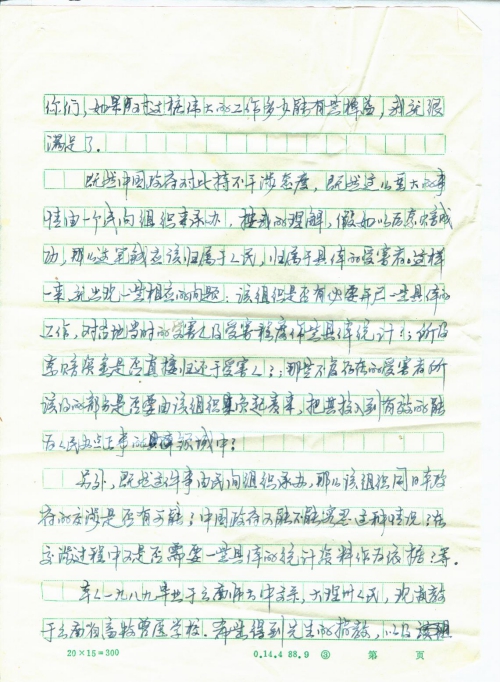 你们，如果对这桩伟大的工作多少能有些裨益，我就很
满足了。
既然中国政府对此持不干涉态度，既然这么重大的事
情由一个民间组织来承办，按我的理解，假如以后索赔成
功，那么这笔钱应该归属于人民，归属于具体的受害者。这样
一来，就出现一些相应的问题：该组织是否有必要再作一些具体的
工作，对当地当时的受害人及受害程度作些具体统计；所得
索赔资金是否直接归还于受害人？；那些不复存在的受害者所
该得的部分是否要由该组织负起责来，把其投入到有效的能
为人民办点正事的领域中？
另外，既然这件事由民间组织承办，那么该组织同日本政
府的交涉是否有可能；中国政府可能不能容忍这种情况；在
交涉过程中又是否需要一些具体的统计资料作为依据；等。
本人一九八九年毕业于云南师大中文系，大理州人民，现就教
于云南省畜牧兽医学校。希望得到先生的指教，以及该组
20×15=300 0.14.4 88.9 ③ 第 页